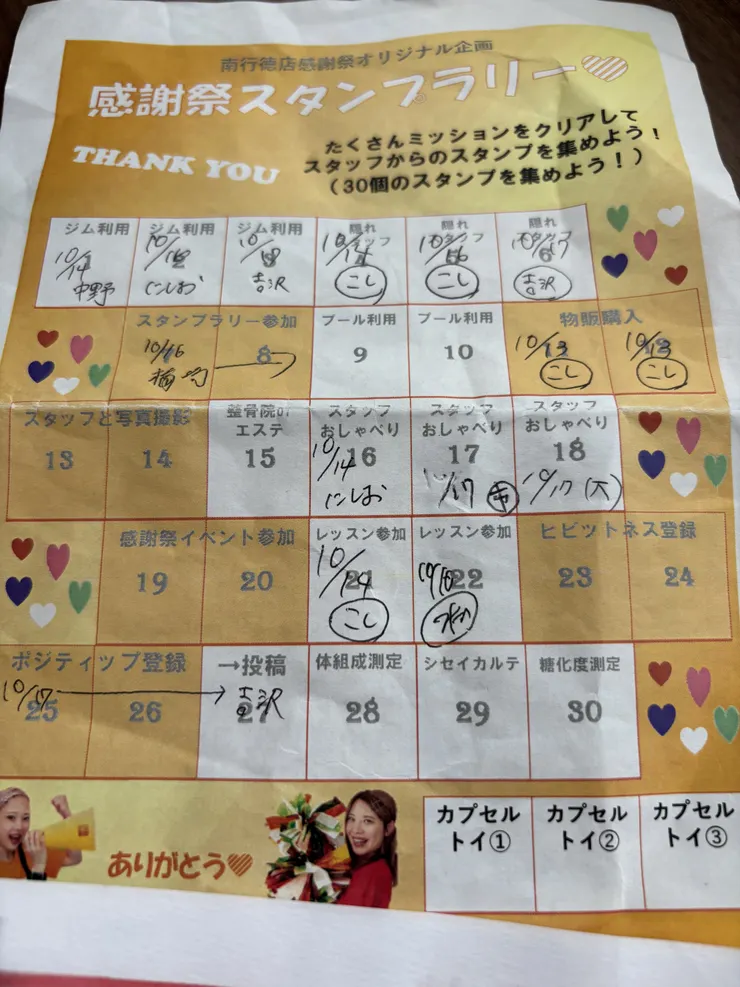 南行徳店感謝祭オリジナル企画
感謝祭スタンプラリー
THANK YOU
たくさんミッションをクリアして
スタッフからのスタンプを集めよう!
(30個のスタンプを集めよう!)
ジム利用 ジム利用 ジム利用 隠れ 隠れ 隠れ
スタッフ スタッフ スタッフ
10/14 10/14 10/17
中野 にしお 吉沢 こし こし 吉沢
スタンプラリー参加 プール利用 プール利用 物販購入
10/16 8 9 10 10/13 10/13
こし こし
スタッフと写真撮影 整骨院の スタッフ スタッフ スタッフ
エステ おしゃべり おしゃべり おしゃべり
13 14 15 16 17 18
10/14 10/17 10/17
にしお
感謝祭イベント参加 レッスン参加 レッスン参加 ヒビットネス登録
19 20 21 22 23 24
10/14
こし
ポジティップ登録 →投稿 体組成測定 シセイカルテ 糖化度測定
10/17 → 吉沢
25 26 27 28 29 30
ありがとう
カプセル カプセル カプセル
トイ① トイ② トイ③